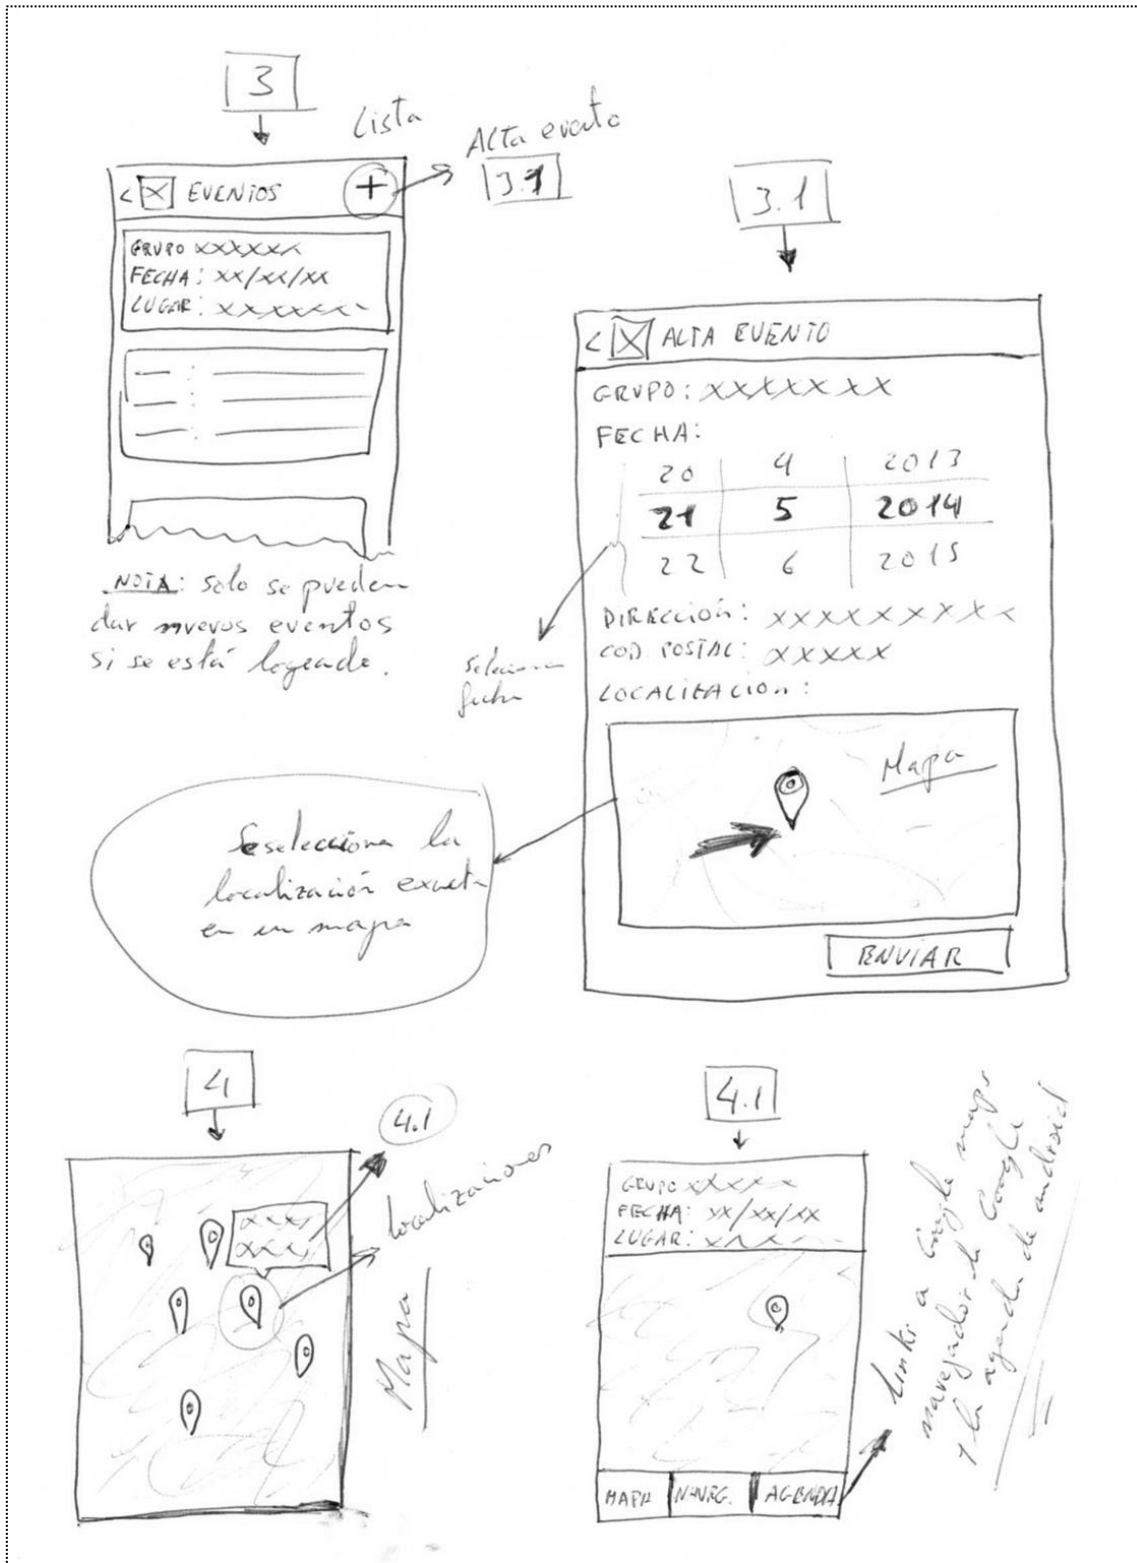 3
Lista
Alta evento
3.1
< X EVENTOS +
GRUPO XXXXXX
FECHA: XX/XX/XX
LUGAR: XXXXXXX
NOTA: Solo se pueden
dar nuevos eventos
si se está logeado.
3.1
< X ALTA EVENTO
GRUPO: XXXXXXX
FECHA:
20 4 2013
21 5 2014
22 6 2015
Selecciona
fecha
DIRECCIÓN: XXXXXXXXX
COD. POSTAL: XXXXX
LOCALIZACIÓN:
Mapa
Se selecciona la
localización exacta
en un mapa
ENVIAR
4
4.1
XXXX
XXXX
localizaciones
Mapa
4.1
GRUPO XXXXX
FECHA: XX/XX/XX
LUGAR: XXXX
MAPA NAVEG. AGENDA
Links a Google maps
navegador de Google
y la agenda de android